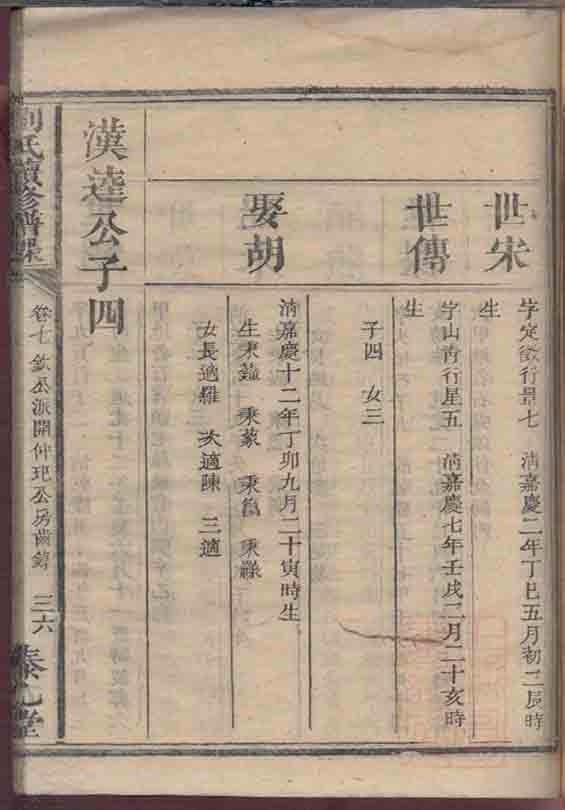 世宋
字定徵行景七 清嘉慶二年丁巳五月初二辰時
生
世傳
字山甫行星五 清嘉慶七年壬戌二月二十亥時
生
子四 女三
娶胡
清嘉慶十二年丁卯九月二十寅時生
生秉鎰 秉蒙 秉篤 秉祿
女長適羅 次適陳 三適
漢達公子四
劉氏續修譜牒
卷七欽公派開仲玘公房齒錄 三六
堂